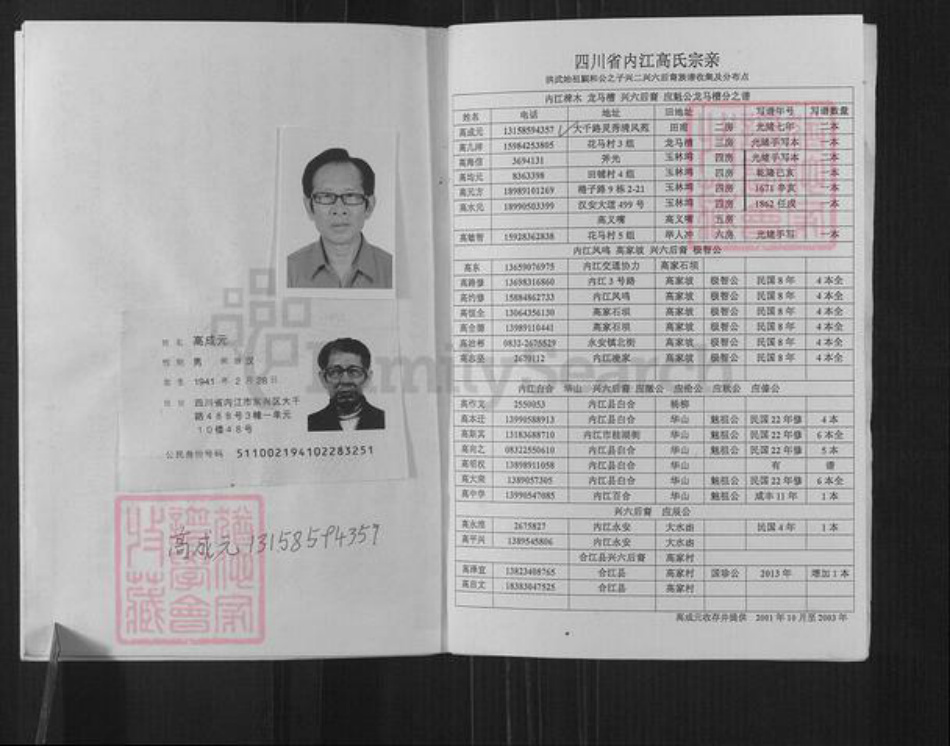 姓名 高成元
性别 男 民族 汉
出生 1941 年 2 月 28 日
住址 四川省内江市东兴区大千
路488号3幢一单元
10楼48号
公民身份号码 511002194102283251
高成元 13158594357
FamilySearch
四川省内江高氏宗亲
内江椑木 龙马槽 兴六后裔 应魁公龙马槽分之谱
姓名 电话 地址 旧地址 写谱年号 写谱数量
高成元 13158594357 大千路灵秀清风苑 田甫 二房 光绪七年 二本
15984253805 花马村 3 组 龙马槽 三房 光绪手写本 一本
高海信 3694131 玉林湾 四房 光绪手写本 二本
高均元 8363398 田铺村 4 组 玉林湾 四房 乾隆己亥 一本
高元方 18989101269 9 栋 2-21 玉林湾 四房 1671 辛亥 一本
高水元 18990503399 汉安大道 499 号 玉林湾 四房 1862 任戌 一本
高义嘴 高义嘴 五房
高敏智 15928362838 花马村 5 组 举人冲 六房 光绪手写 一本
内江凤鸣 高家坡 兴六后裔 极智公
高东 13659076975 内江交通协力 高家石坝
高路修 13698316860 内江 3 号路 高家坡 极智公 民国 8 年 4 本全
高约修 15884862733 内江凤鸣 高家坡 极智公 民国 8 年 4 本全
高恒全 13064356130 高家石坝 高家坡 极智公 民国 8 年 4 本全
高全德 13989110441 高家石坝 高家坡 极智公 民国 8 年 4 本全
0832-2676529 永安镇北街 高家坡 极智公 民国 8 年 4 本全
2679112 高家坡 极智公 民国 8 年 4 本全
内江白合 华山 兴六后裔
高作文 2550053 内江县白合 杨柳
高本迁 13990588913 内江县白合 华山 魁祖公 民国 22 年修 4 本
13183688710 内江市桂湖街 华山 魁祖公 民国 22 年修 6 本全
08322550610 内江县白合 华山 魁祖公 民国 22 年修 5 本
高明权 13898911058 内江县白合 华山 有 谱
高大荣 1389057305 内江县白合 华山 魁祖公 民国 22 年修 6 本全
高中华 13990547085 内江百合 华山 魁祖公 咸丰 11 年 1 本
兴六后裔 应辰公
2675827 内江永安 大水凼 民国 4 年 1 本
高平兴 1389545806 内江永安 大水凼
合江县兴六后裔 高家村
高泽宜 13823408765 合江县 高家村 国珍公 2013 年 增加 1 本
高自文 18383047525 合江县 高家村
高成元收存并提供 2001 年 10 月至 2003 年